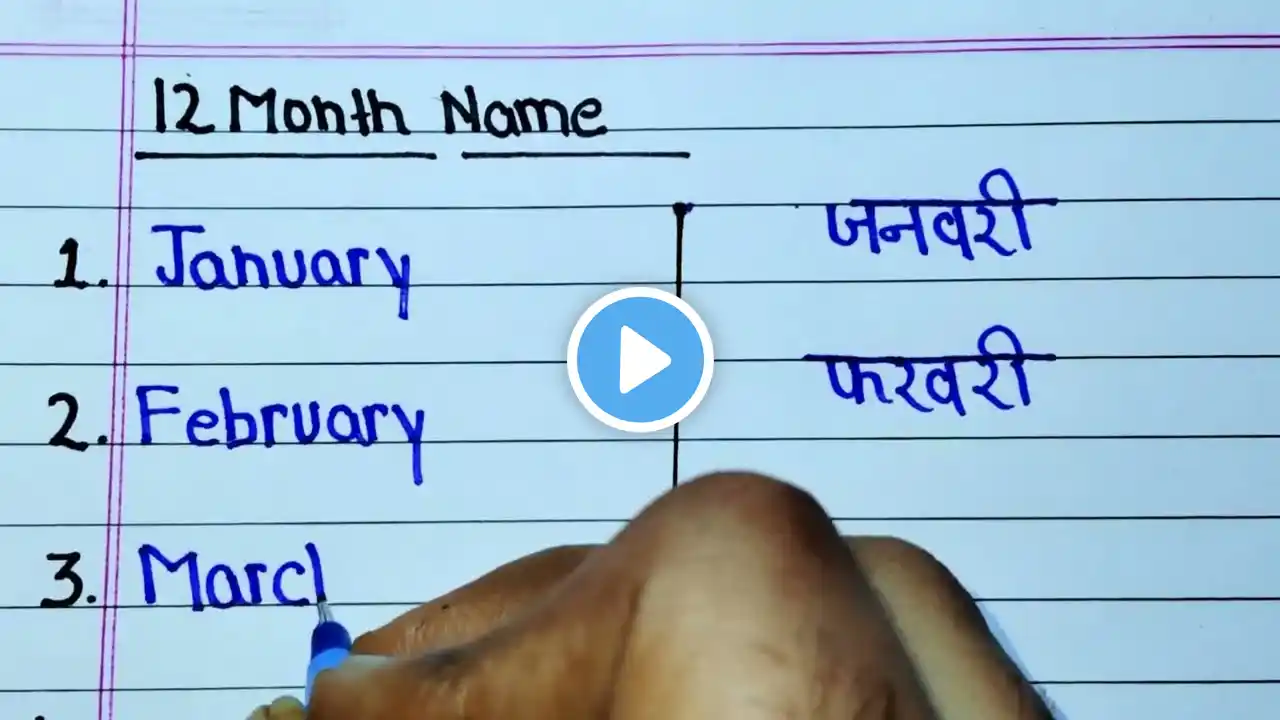 12 Month Name
1. January जनवरी
2. February फरवरी
3. Marcl